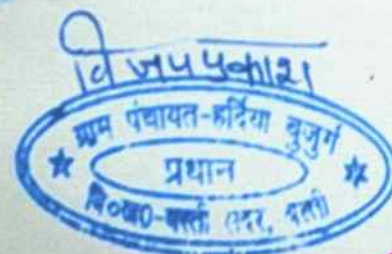 विजय प्रकाश
ग्राम पंचायत-हर्दिया बुजुर्ग
प्रधान
वि०ख०-बस्ती सदर, बस्ती